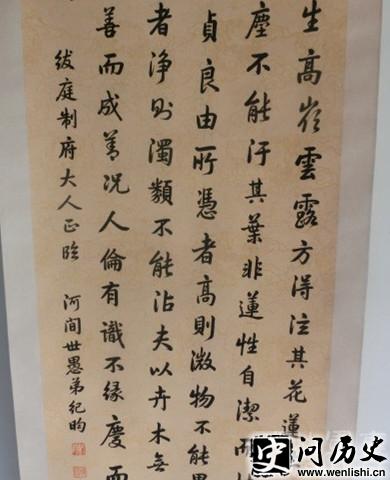 生高嶺雲露方得注其花蓮
塵不能汙其葉非蓮性自潔而
貞良由所憑者高則微物不能
者淨則濁類不能沾夫以卉木無
善而成善况人倫有識不緣慶而
紱庭制府大人正臨 河间世愚弟纪昀
史问历史
www.wenlishi.cn